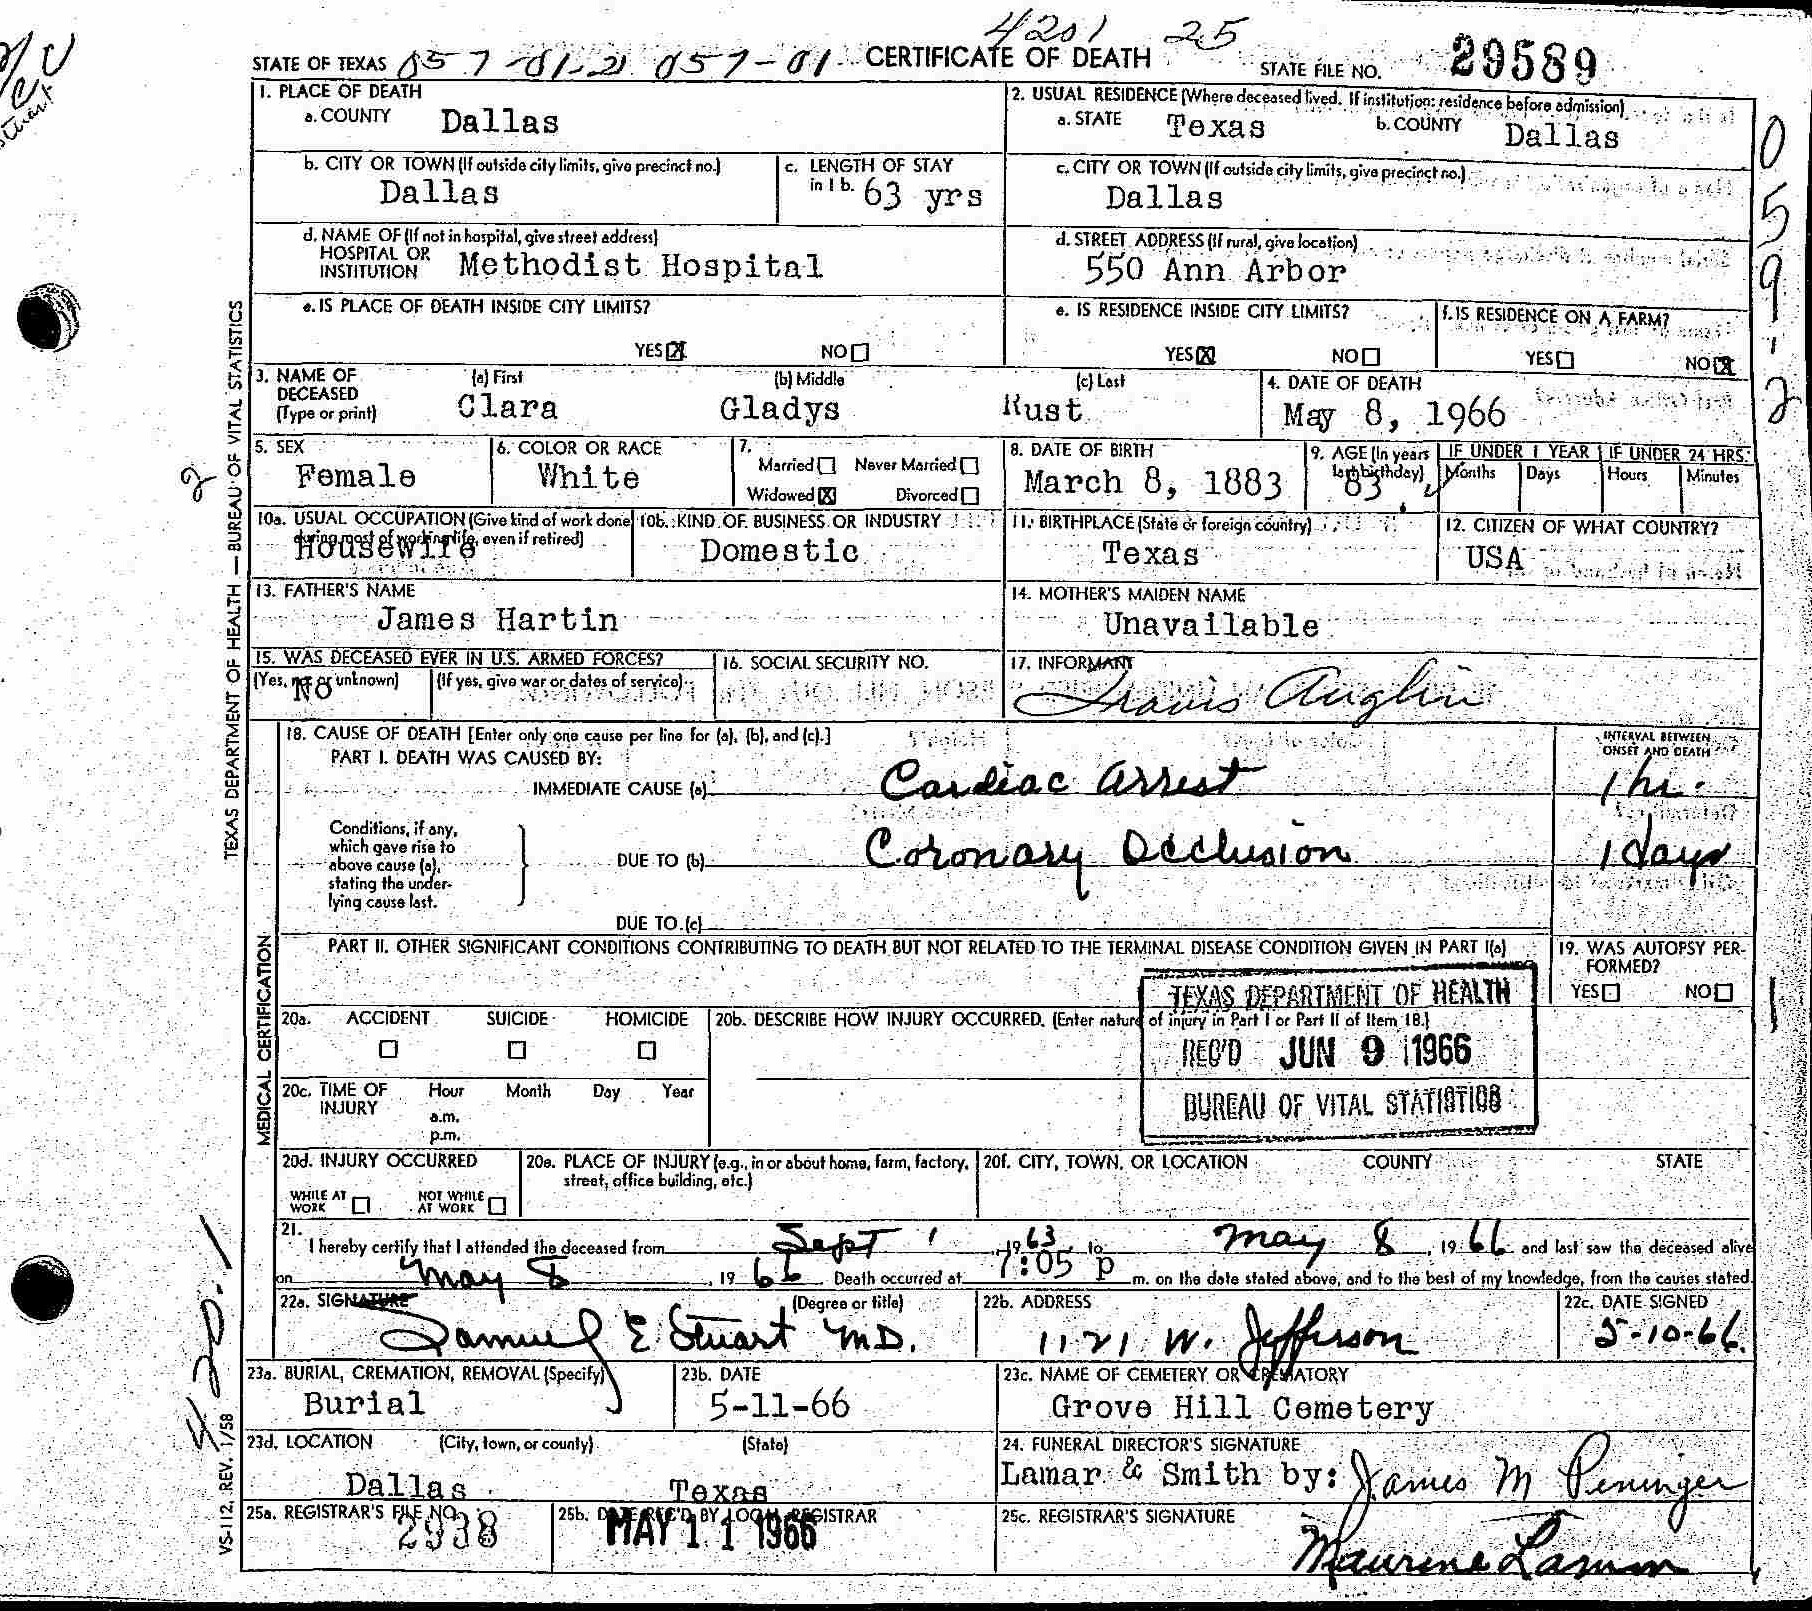 4201 25
STATE OF TEXAS 057-01-2 057-01 CERTIFICATE OF DEATH STATE FILE NO. 29589
1. PLACE OF DEATH
a. COUNTY Dallas
2. USUAL RESIDENCE (Where deceased lived. If institution: residence before admission)
a. STATE Texas b. COUNTY Dallas
b. CITY OR TOWN (If outside city limits, give precinct no.)
Dallas
c. LENGTH OF STAY
in 1 b. 63 yrs
c. CITY OR TOWN (If outside city limits, give precinct no.)
Dallas
d. NAME OF (If not in hospital, give street address)
HOSPITAL OR
INSTITUTION Methodist Hospital
d. STREET ADDRESS (If rural, give location)
550 Ann Arbor
e. IS PLACE OF DEATH INSIDE CITY LIMITS?
YES X NO
e. IS RESIDENCE INSIDE CITY LIMITS?
YES X NO
f. IS RESIDENCE ON A FARM?
YES NO X
3. NAME OF
DECEASED
(Type or print)
(a) First (b) Middle (c) Last
Clara Gladys Rust
4. DATE OF DEATH
May 8, 1966
5. SEX
Female
6. COLOR OR RACE
White
7.
Married Never Married
Widowed X Divorced
8. DATE OF BIRTH
March 8, 1883
9. AGE (In years
last birthday)
83
IF UNDER 1 YEAR IF UNDER 24 HRS.
Months Days Hours Minutes
10a. USUAL OCCUPATION (Give kind of work done
during most of working life, even if retired)
Housewife
10b. KIND OF BUSINESS OR INDUSTRY
Domestic
11. BIRTHPLACE (State or foreign country)
Texas
12. CITIZEN OF WHAT COUNTRY?
USA
13. FATHER'S NAME
James Hartin
14. MOTHER'S MAIDEN NAME
Unavailable
15. WAS DECEASED EVER IN U.S. ARMED FORCES?
(Yes, no or unknown) (If yes, give war or dates of service)
No
16. SOCIAL SECURITY NO.
17. INFORMANT
Travis Anglin
18. CAUSE OF DEATH [Enter only one cause per line for (a), (b), and (c).]
PART I. DEATH WAS CAUSED BY:
INTERVAL BETWEEN
ONSET AND DEATH
IMMEDIATE CAUSE (a) Cardiac Arrest 1 hr.
Conditions, if any,
which gave rise to
above cause (a),
stating the under-
lying cause last.
DUE TO (b) Coronary Occlusion 1 days
DUE TO (c)
PART II. OTHER SIGNIFICANT CONDITIONS CONTRIBUTING TO DEATH BUT NOT RELATED TO THE TERMINAL DISEASE CONDITION GIVEN IN PART I(a)
19. WAS AUTOPSY PER-
FORMED?
YES NO
TEXAS DEPARTMENT OF HEALTH
REC'D JUN 9 1966
BUREAU OF VITAL STATISTICS
20a. ACCIDENT SUICIDE HOMICIDE
20b. DESCRIBE HOW INJURY OCCURRED. (Enter nature of injury in Part I or Part II of Item 18.)
20c. TIME OF
INJURY
Hour Month Day Year
a.m.
p.m.
20d. INJURY OCCURRED
WHILE AT
WORK
NOT WHILE
AT WORK
20e. PLACE OF INJURY (e.g., in or about home, farm, factory,
street, office building, etc.)
20f. CITY, TOWN, OR LOCATION COUNTY STATE
21.
I hereby certify that I attended the deceased from Sept 1, 1963 to May 8, 1966 and last saw the deceased alive
on May 8, 1966 Death occurred at 7:05 p m. on the date stated above, and to the best of my knowledge, from the causes stated.
22a. SIGNATURE (Degree or title)
Samuel E Stuart MD.
22b. ADDRESS
1121 W. Jefferson
22c. DATE SIGNED
5-10-66
23a. BURIAL, CREMATION, REMOVAL (Specify)
Burial
23b. DATE
5-11-66
23c. NAME OF CEMETERY OR CREMATORY
Grove Hill Cemetery
23d. LOCATION (City, town, or county) (State)
Dallas Texas
24. FUNERAL DIRECTOR'S SIGNATURE
Lamar & Smith by: James M Peninger
25a. REGISTRAR'S FILE NO.
2938
25b. DATE REC'D BY LOCAL REGISTRAR
MAY 11 1966
25c. REGISTRAR'S SIGNATURE
Maurine Lamm
TEXAS DEPARTMENT OF HEALTH — BUREAU OF VITAL STATISTICS
MEDICAL CERTIFICATION
VS-112, REV. 1/58
2
420.1
059-2
1